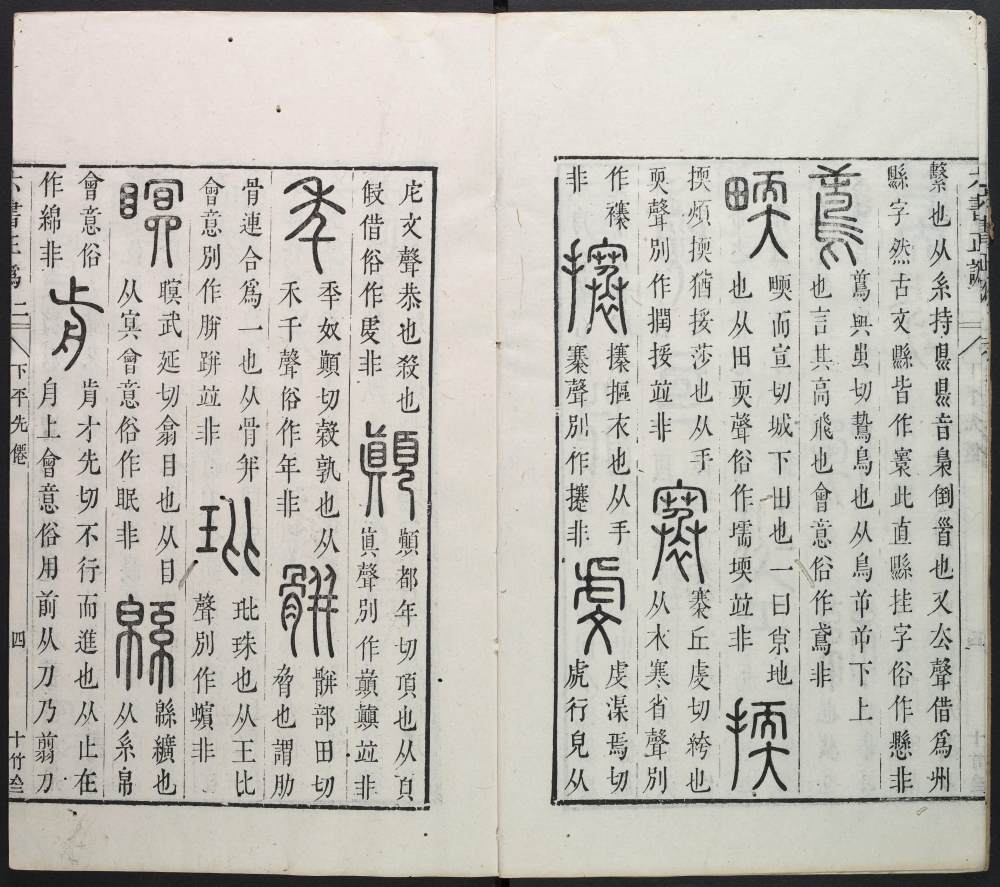 繫也从糸持県県音梟倒𩠐也又去聲借爲州
縣字然古文縣皆作寰此直縣挂字俗作懸非
鳶
切鷙鳥也从鳥
下上
也言其高飛也會意俗作鳶非
㽭
㽭而宣切城下田也一曰地
也从田耎聲俗作壖堧竝非
㨎
㨎煩㨎猶挼莎也从手
耎聲別作撋挼竝非
褰
褰丘虔切絝也
从衣寒省聲別
作襍
非
攐
攐摳衣也从手
褰聲別作攓非
虔
虔渠焉切
虎行皃从
虍文聲恭也殺也
假借俗作䖍非
顚
顚都年切頂也从頁
眞聲別作巓巔竝非
秊
秊奴顚切穀孰也从
禾千聲俗作年非
骿
骿部田切
脅也謂肋
骨連合爲一也从骨幷
會意別作胼跰竝非
玭
玭珠也从王比
聲別作蠙非
瞑
瞑武延切翕目也从目
从冥會意俗作眠非
緜
緜纊也
从系帛
會意俗
作綿非
歬
歬才先切不行而進也从止在
舟上會意俗用前从刀乃翦刀
六書正譌 二 下平先僊 四 十竹齋